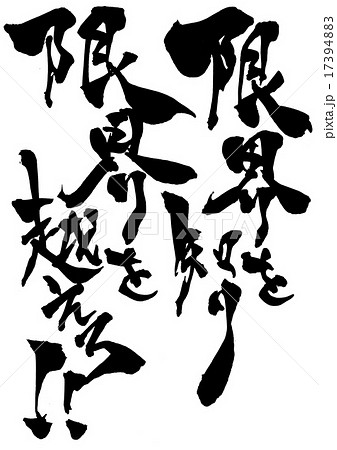 限界を知り
限界を超えろ!!
PIXTA
pixta.jp - 17394883